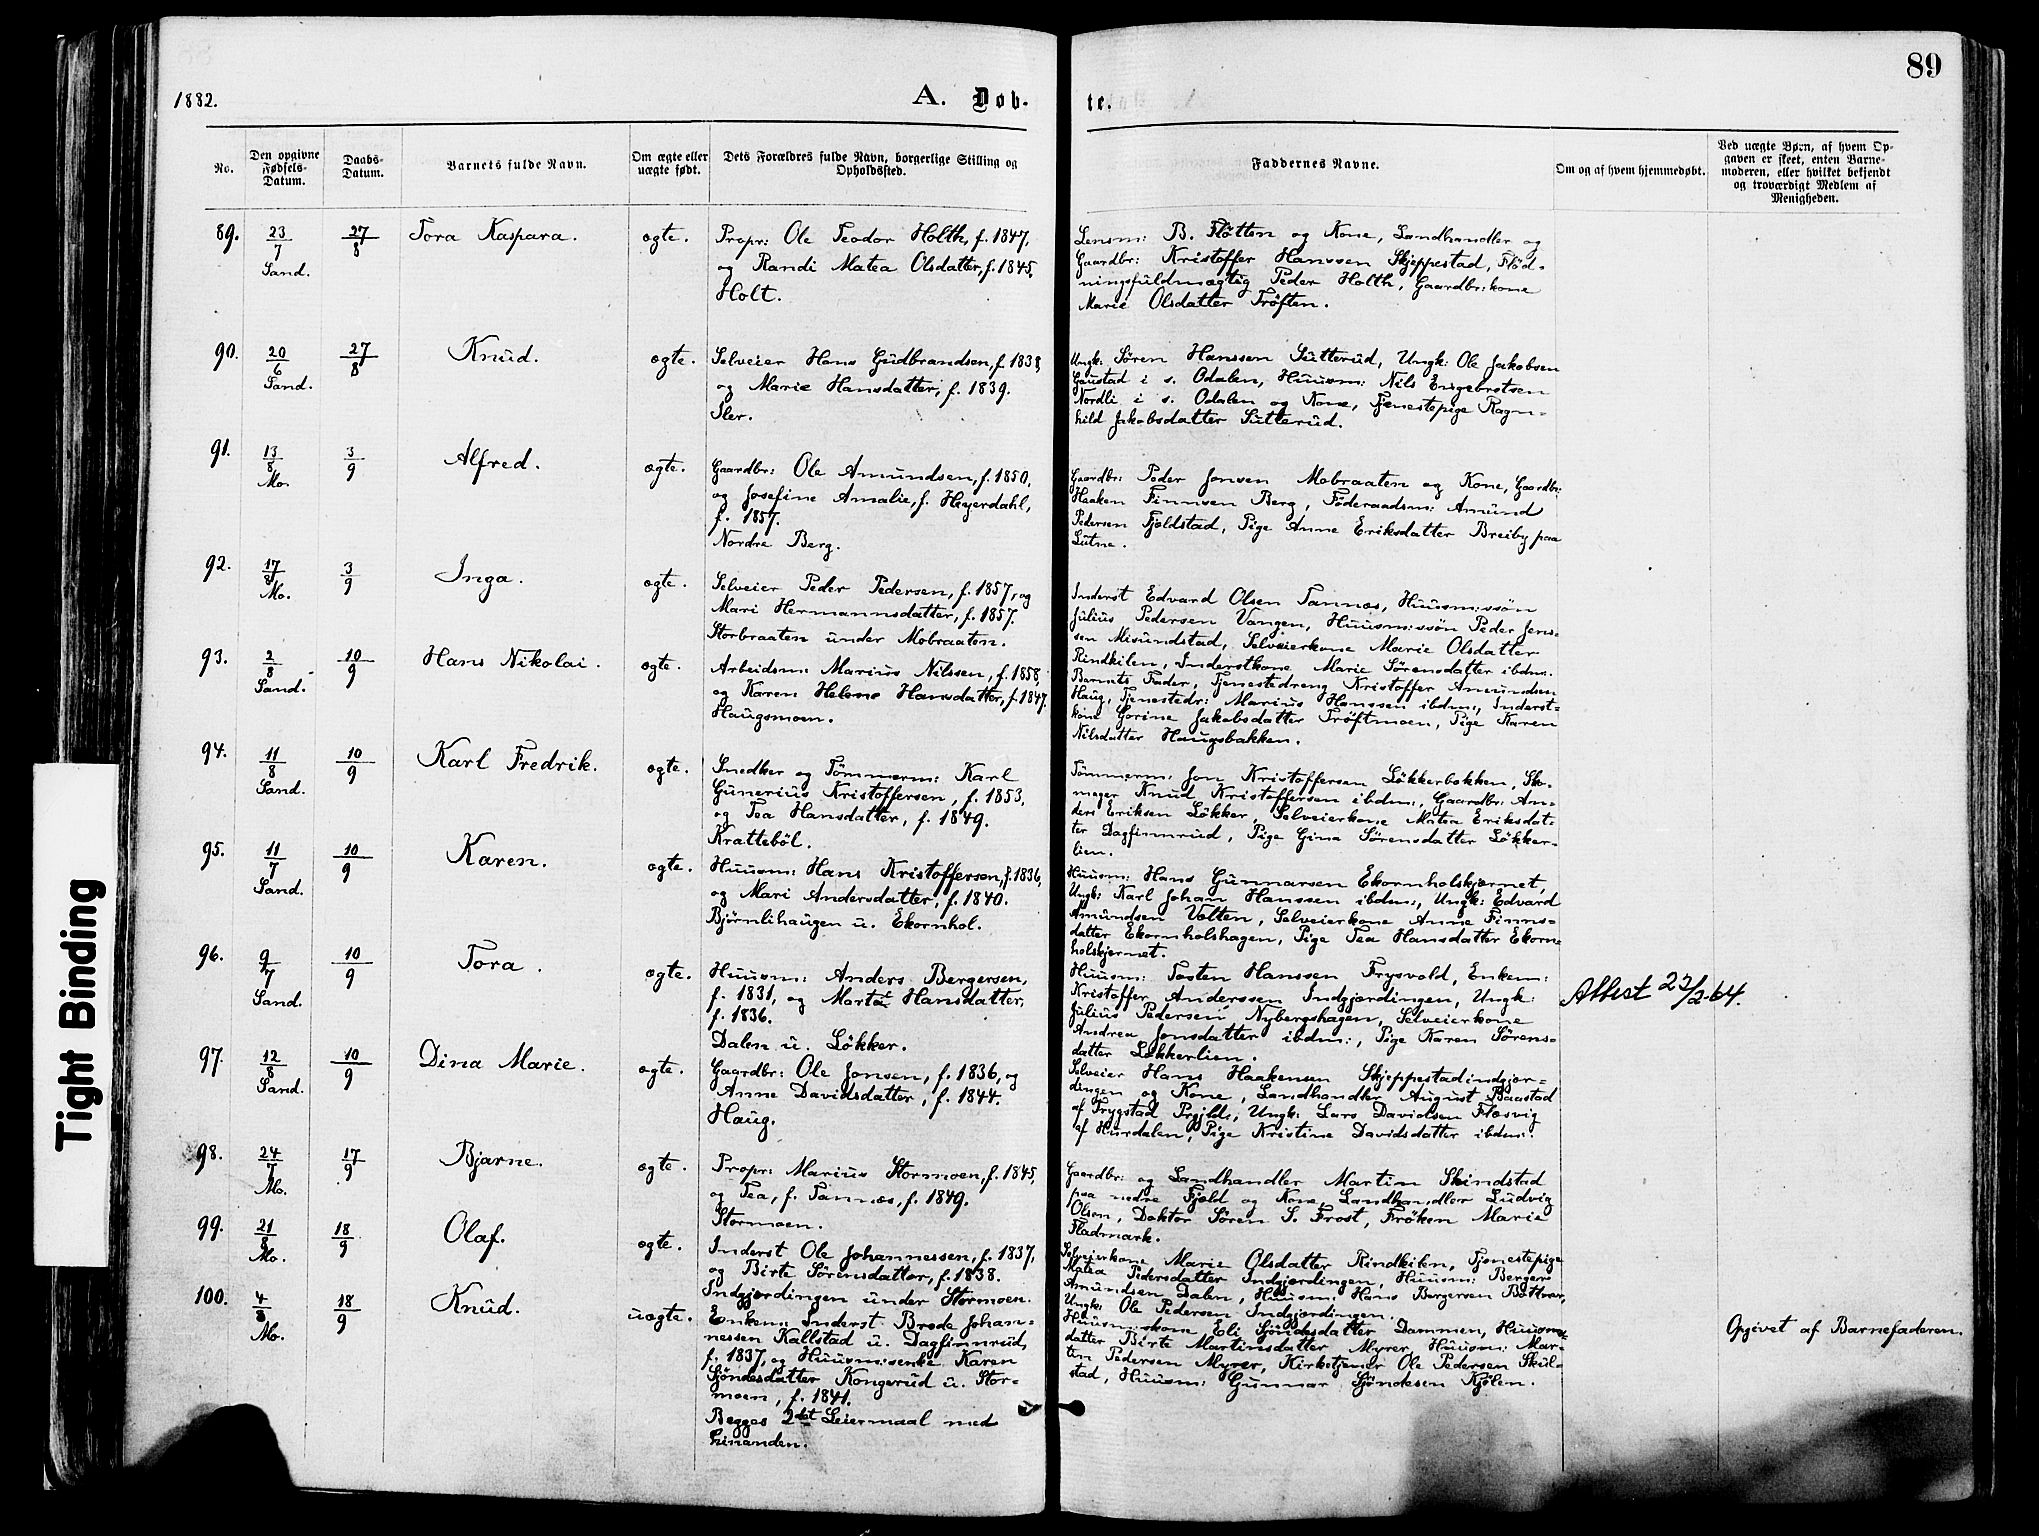 89
1882.
A. Døb-
te.
No.
Den opgivne
Fødsels-
Datum.
Daabs-
Datum.
Barnets fulde Navn.
Om ægte eller
uægte født.
Dets Forældres fulde Navn, borgerlige Stilling og
Opholdssted.
Faddernes Navne.
Om og af hvem hjemmedøbt.
Ved uægte Børn, af hvem Op-
gaven er skeet, enten Barne-
moderen, eller hvilket bekjendt
og troværdigt Medlem af
Menigheden.
89.
23/7
Sand.
27/8
Tora Kaspara.
ægte.
Propr: Ole Teodor Holth, f. 1847,
og Randi Matea Olsdatter, f. 1845.
Holt.
Lensm: B. Fløtten og Kone, Landhandler og
Gaardbr: Kristoffer Hanssen Skjeppestad, Flød-
ningsfuldmægtig Peder Holth, Gaardbr:kone
Marie Olsdatter Trøften.
90.
20/6
Sand.
27/8
Knud.
ægte.
Selveier Hans Gudbrandsen, f. 1838,
og Marie Hansdatter, f. 1839.
Sler.
Ungk: Søren Hanssen Sutterud, Ungk: Ole Jakobsen
Gaustad i s. Odalen, Huusm: Nils Engebretsen
Nordli i s. Odalen og Kone, Tjenestepige Ragn-
hild Jakobsdatter Sutterud.
91.
13/8
Mo.
3/9
Alfred.
ægte.
Gaardbr: Ole Amundsen, f. 1850,
og Josefine Amalie, f. Heyerdahl,
f. 1857.
Nordre Berg.
Gaardbr: Peder Jonsen Mobraaten og Kone, Gaardbr:
Haaken Finnsen Berg, Føderaadsm: Amund
Pedersen Fjeldstad, Pige Anne Eriksdatter Breiby paa
Lutne.
92.
17/8
Mo.
3/9
Inga.
ægte.
Selveier Peder Pedersen, f. 1857, og
Mari Hermannsdatter, f. 1857.
Storbraaten under Mobraaten.
Inderst Edvard Olsen Tannæs, Huusm:søn
Julius Pedersen Vangen, Huusm:søn Peder Jens-
sen Misundstad, Selveierkone Marie Olsdatter
Rindkilen, Inderstkone Marie Sørensdatter ibdm:
93.
2/8
Sand.
10/9
Hans Nikolai.
ægte.
Arbeidsm: Marius Nilssen, f. 1858,
og Karen Helene Hansdatter, f. 1847.
Haugsmoen.
Barnets Fader, Tjenestedreng Kristoffer Amundsen
Haug, Tjenestedr: Marius Hanssen ibdm:, Inderst-
kone Gorine Jakobsdatter Trøftmoen, Pige Karen
Nilsdatter Haugsbakken.
94.
11/8
Sand.
10/9
Karl Fredrik.
ægte.
Snedker og Tømmerm: Karl
Gunerius Kristoffersen, f. 1853,
og Tea Hansdatter, f. 1849.
Krattebøl.
Tømmerm: Jon Kristoffersen Løkkerbakken, Sko-
mager Knud Kristoffersen ibdm:, Gaardbr: An-
ders Eriksen Løkker, Selveierkone Matea Eriksdat-
ter Dagfinnrud, Pige Gina Sørensdatter Løkker-
lien.
95.
11/7
Sand.
10/9
Karen.
ægte.
Huusm: Hans Kristoffersen, f. 1836,
og Mari Andersdatter, f. 1840.
Bjørnlihaugen u. Ekornhol.
Huusm: Hans Gunnarsen Ekornholskjærnet,
Ungk: Karl Johan Hanssen ibdm:, Ungk: Edvard
Amundsen Volten, Selveierkone Anne Finns-
datter Ekornholshagen, Pige Tea Hansdatter Ekorn-
holskjernet.
96.
9/7
Sand.
10/9
Tora.
ægte.
Huusm: Anders Bergersen,
f. 1831, og Marta Hansdatter,
f. 1836.
Dalen u. Løkker.
Huusm: Tosten Hanssen Frysvold, Enkem:
Kristoffer Anderssen Indgjordingen, Ungk:
Julius Pedersen Nybergshagen, Selveierkone
Andrea Jonsdatter ibdm:, Pige Karen Sørens-
datter Løkkerlien.
Attest 23/3-64.
97.
12/8
Sand.
10/9
Dina Marie.
ægte.
Gaardbr: Ole Jonsen, f. 1836, og
Anne Davidsdatter, f. 1844.
Haug.
Selveier Hans Haakensen Skjeppestadindgjor-
dingen og Kone, Landhandler August Baastad
af Trygstad Prgjld:, Ungk: Lars Davidsen Flæsvig
af Hurdalen, Pige Kristine Davidsdatter ibdm:
98.
24/7
Mo.
17/9
Bjarne.
ægte.
Propr: Marius Stormoen, f. 1845,
og Tea, f. Tannæs, f. 1849.
Stormoen.
Gaardbr: og Landhandler Martin Skindstad
paa nedre Fjeld og Kone, Landhandler Ludvig
Olsen, Doktor Søren S. Frost, Frøken Marie
Fladmark.
99.
21/8
Mo.
18/9
Olaf.
ægte.
Inderst Ole Johannessen, f. 1837,
og Birte Sørensdatter, f. 1838.
Indgjordingen under Stormoen.
Selveierkone Marie Olsdatter Rindkilen, Tjenestepige
Matea Pedersdatter Indgjordingen, Huusm: Berger
Amundsen Dalen, Huusm: Hans Bergersen
Ungk: Ole Pedersen Indgjordingen.
100.
4/8
Mo.
18/9
Knud.
uægte.
Enkem: Inderst Brede Johan-
nessen Kallstad u. Dagfinnrud,
f. 1837, og Huusm:enke Karen
Sjøndesdatter Kongerud u. Stor-
moen, f. 1841.
Begges 2det Leiermaal med
hinanden.
Huusm:kone Eli Sjøndesdatter Dammen, Huusm:
datter Birte Martinsdatter Myrer, Huusm: Mar-
tin Pedersen Myrer, Kirketjener Ole Pedersen Skul-
stad, Huusm: Gunnar Sjøndesen Kjølen.
Opgivet af Barnefaderen.
Tight Binding